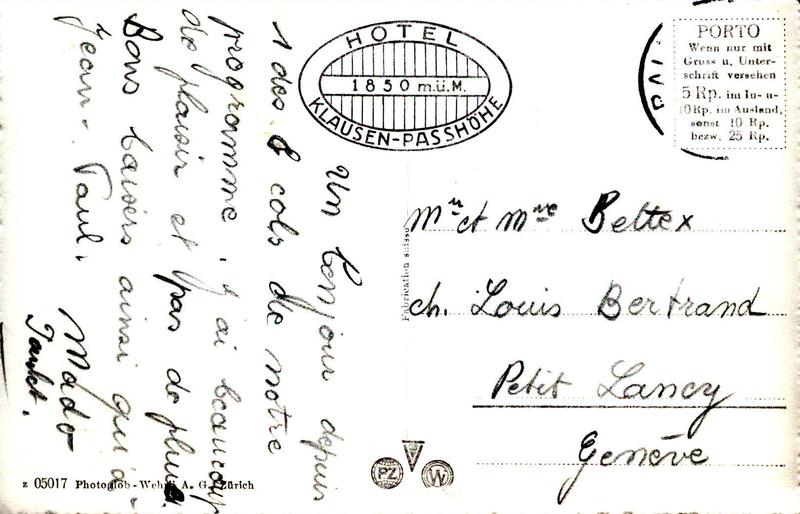 Un bonjour depuis
1 des 8 cols de notre
programme. J'ai beaucoup
de plaisir et pas de pluie.
Bons baisers ainsi qu'à
Jean-Paul.
Mado
HOTEL
1850 m.ü.M.
KLAUSEN-PASSHÖHE
PORTO
Wenn nur mit
Gruss u. Unter-
schrift versehen
5 Rp. im In- u-
10 Rp. im Ausland,
sonst 10 Rp.
bezw. 25 Rp.
Mr et Mme Bettex
ch. Louis Bertrand
Petit Lancy
Genève
Fabrication suisse
z 05017 Photoglob-Wehrli A. G. Zürich
PZ
W